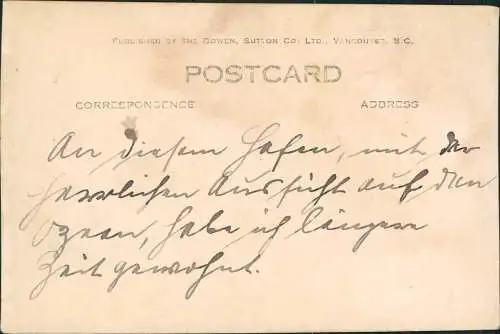 PUBLISHED BY THE GOWEN, SUTTON CO. LTD., VANCOUVER, B.C.
POSTCARD
CORRESPONDENCE ADDRESS
An diesem Hafen, mit der
herrlichen Aussicht auf den
Ozean, habe ich längere
Zeit gewohnt.